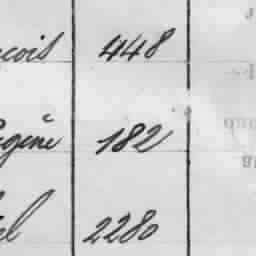 çois 448
Eugène 182
el 2280